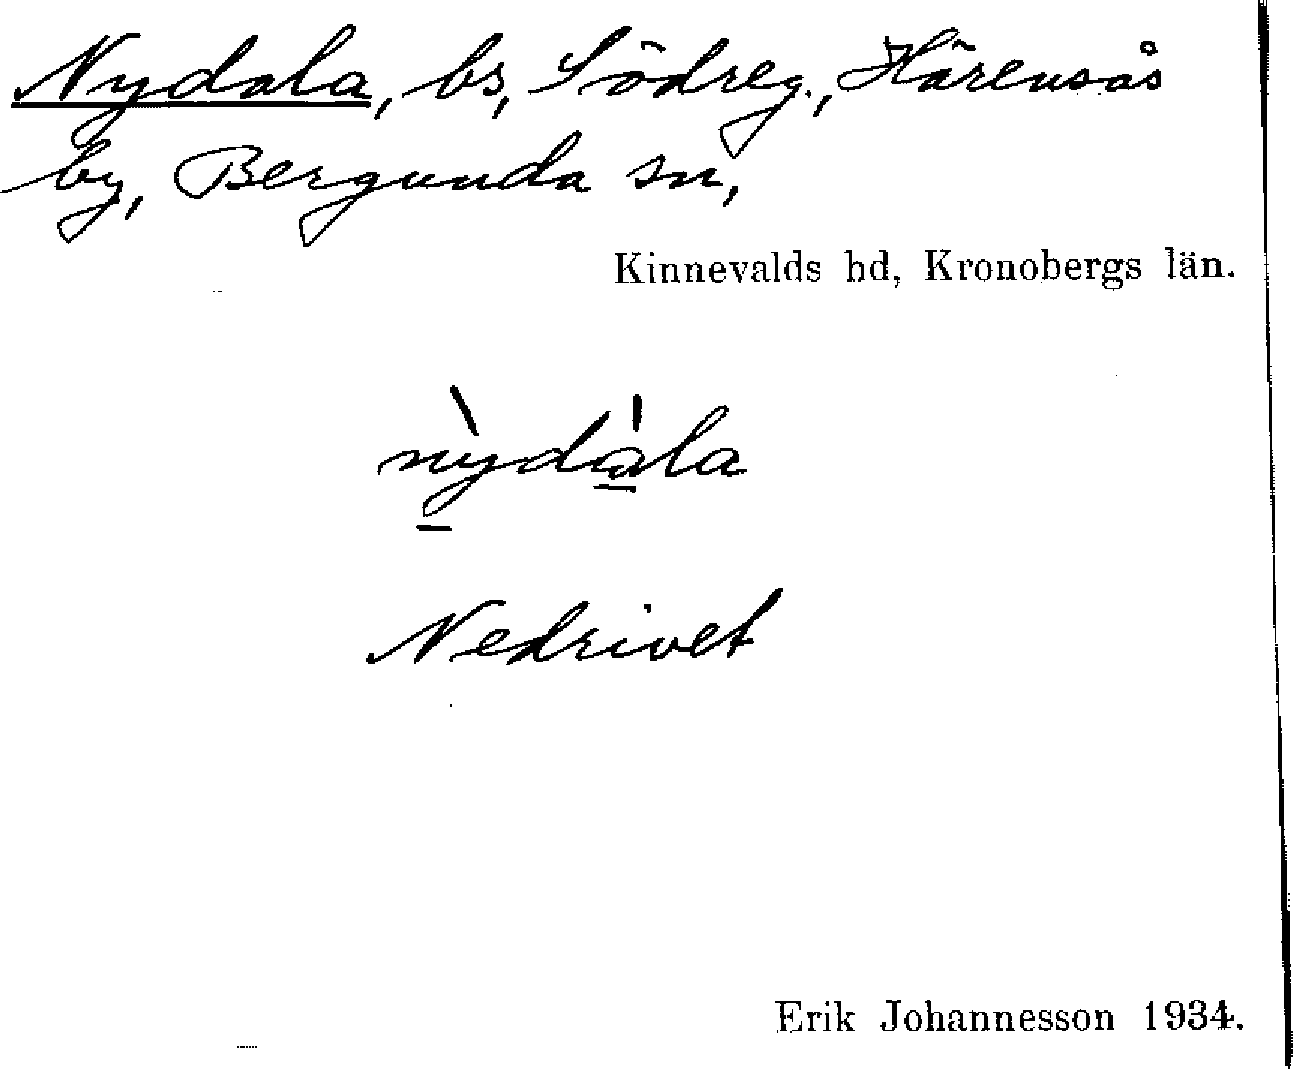 Nydala, bs, Södreg., Härensås
by, Bergunda sn,
Kinnevalds hd, Kronobergs län.
nydala
Nedrivet
Erik Johannesson 1934.